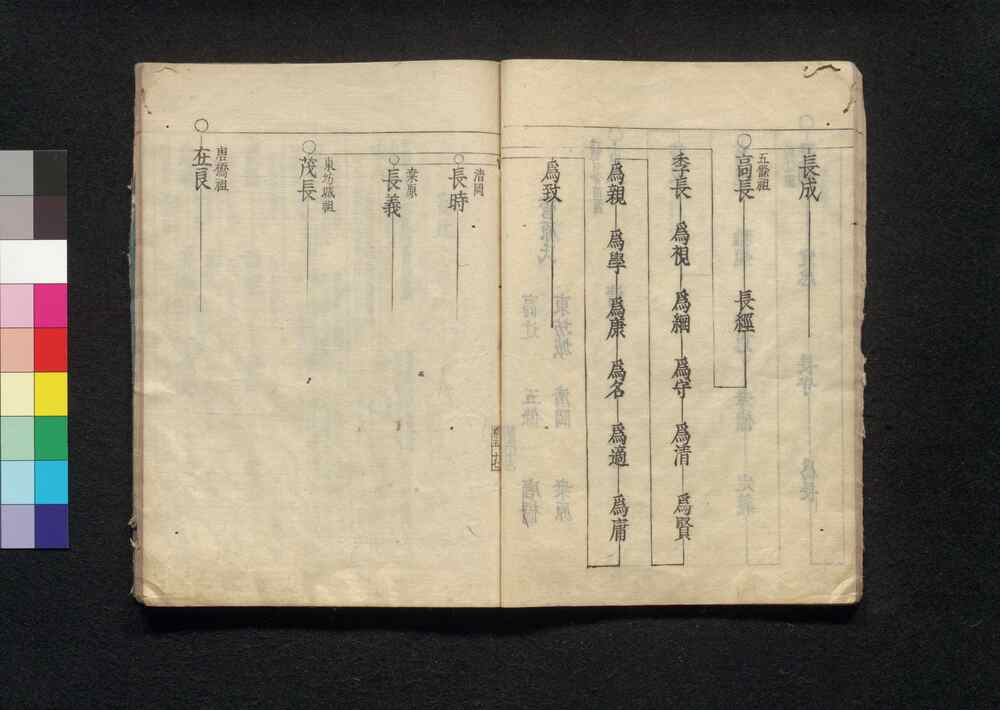 長成
五條祖
高長 長經
季長 爲視 爲綱 爲守 爲清 爲賢
爲親 爲學 爲康 爲名 爲適 爲庸
爲致
清岡
長時
桑原
長義
東坊城祖
茂長
唐橋祖
在良